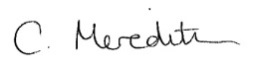 C. Meredith